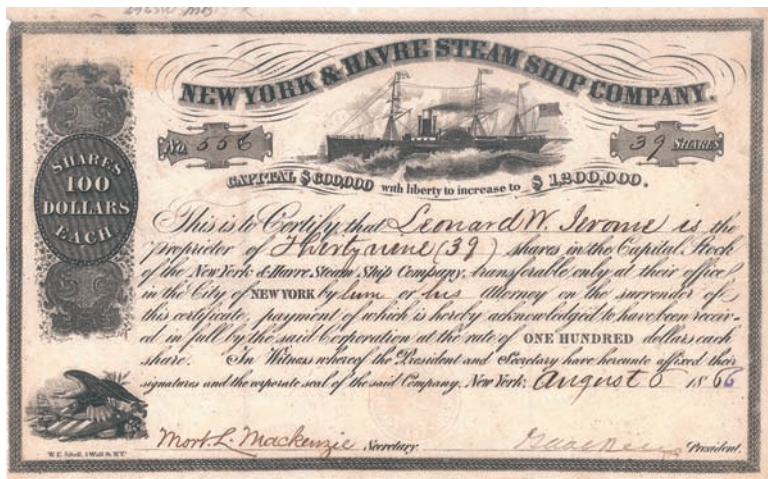 NEW YORK & HAVRE STEAM SHIP COMPANY.
No. 556
39 SHARES
CAPITAL $600,000 with liberty to increase to $1,200,000.
SHARES
100
DOLLARS
EACH
This is to Certify that Leonard W. Jerome is the
proprietor of Thirty nine (39) shares in the Capital Stock
of the New York & Havre Steam Ship Company, transferable only at their office
in the City of NEW YORK by him or his Attorney on the surrender of
this certificate, payment of which is hereby acknowledged to have been receiv-
ed in full by the said Corporation at the rate of ONE HUNDRED dollars each
share. In Witness whereof the President and Secretary have hereunto affixed their
signatures and the corporate seal of the said Company. New York: August 6 1866
Mort. L. Mackenzie Secretary.
President.